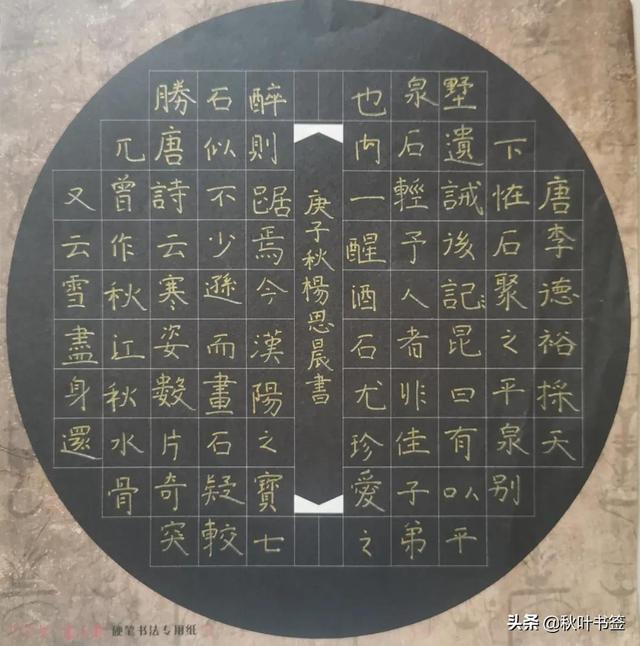 唐李德裕採天
下恠石聚之平泉别
墅遺誡後記昆曰有以平
泉石輕予人者非佳子弟
也内一醒酒石尤珍愛之
庚子秋楊思晨書
醉則踞焉今漢陽之寶七
石似不少遜而畫石疑較
勝唐詩云寒姿數片奇突
兀曾作秋江秋水骨
又云雪盡身還
硬笔书法专用纸
头条 @秋叶书签